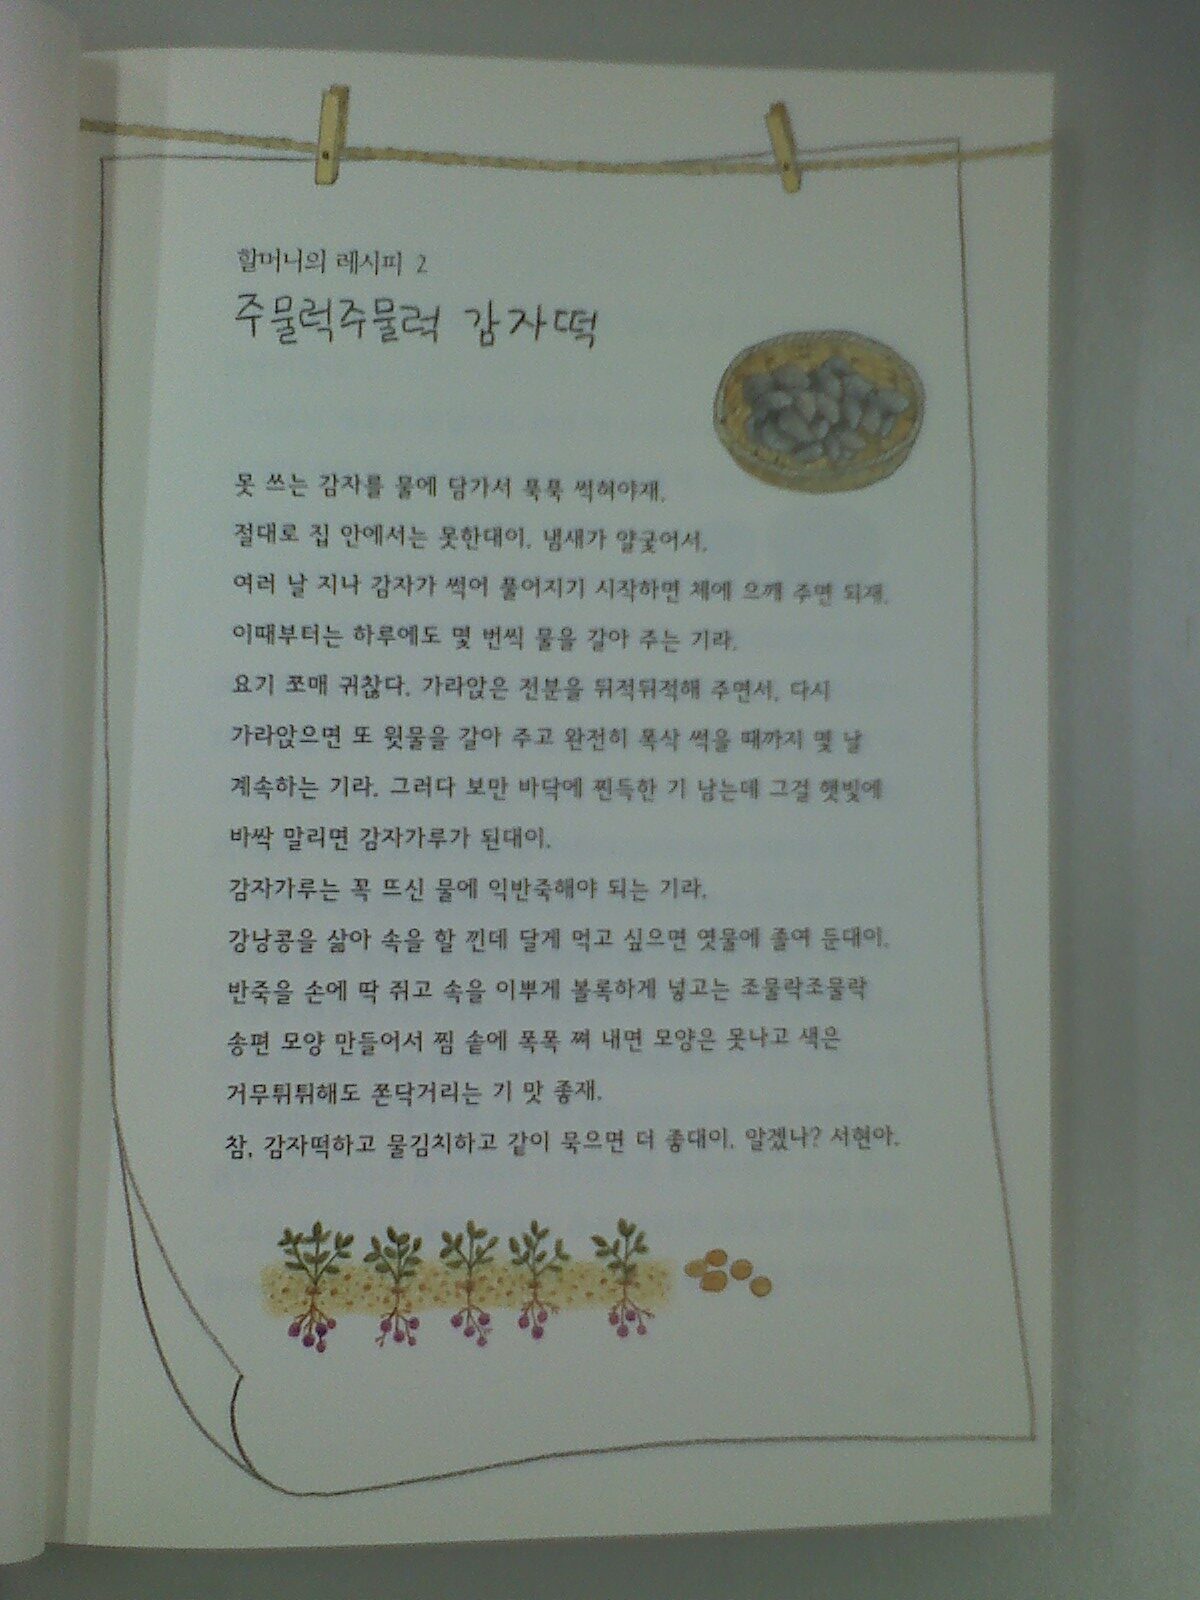 할머니의 레시피 2
주물럭주물럭 감자떡
못 쓰는 감자를 물에 담가서 푹푹 썩혀야재.
절대로 집 안에서는 못한대이. 냄새가 얄궂어서.
여러 날 지나 감자가 썩어 풀어지기 시작하면 체에 으깨 주면 되재.
이때부터는 하루에도 몇 번씩 물을 갈아 주는 기라.
요기 쪼매 귀찮다. 가라앉은 전분을 뒤적뒤적해 주면서, 다시
가라앉으면 또 윗물을 갈아 주고 완전히 폭삭 썩을 때까지 몇 날
계속하는 기라. 그러다 보만 바닥에 찐득한 기 남는데 그걸 햇빛에
바싹 말리면 감자가루가 된대이.
감자가루는 꼭 뜨신 물에 익반죽해야 되는 기라.
강낭콩을 삶아 속을 할 낀데 달게 먹고 싶으면 엿물에 졸여 둔대이.
반죽을 손에 딱 쥐고 속을 이뿌게 볼록하게 넣고는 조물락조물락
송편 모양 만들어서 찜 솥에 폭폭 쪄 내면 모양은 못나고 색은
거무튀튀해도 쫀닥거리는 기 맛 좋재.
참, 감자떡하고 물김치하고 같이 묵으면 더 좋대이. 알겠나? 서현아.